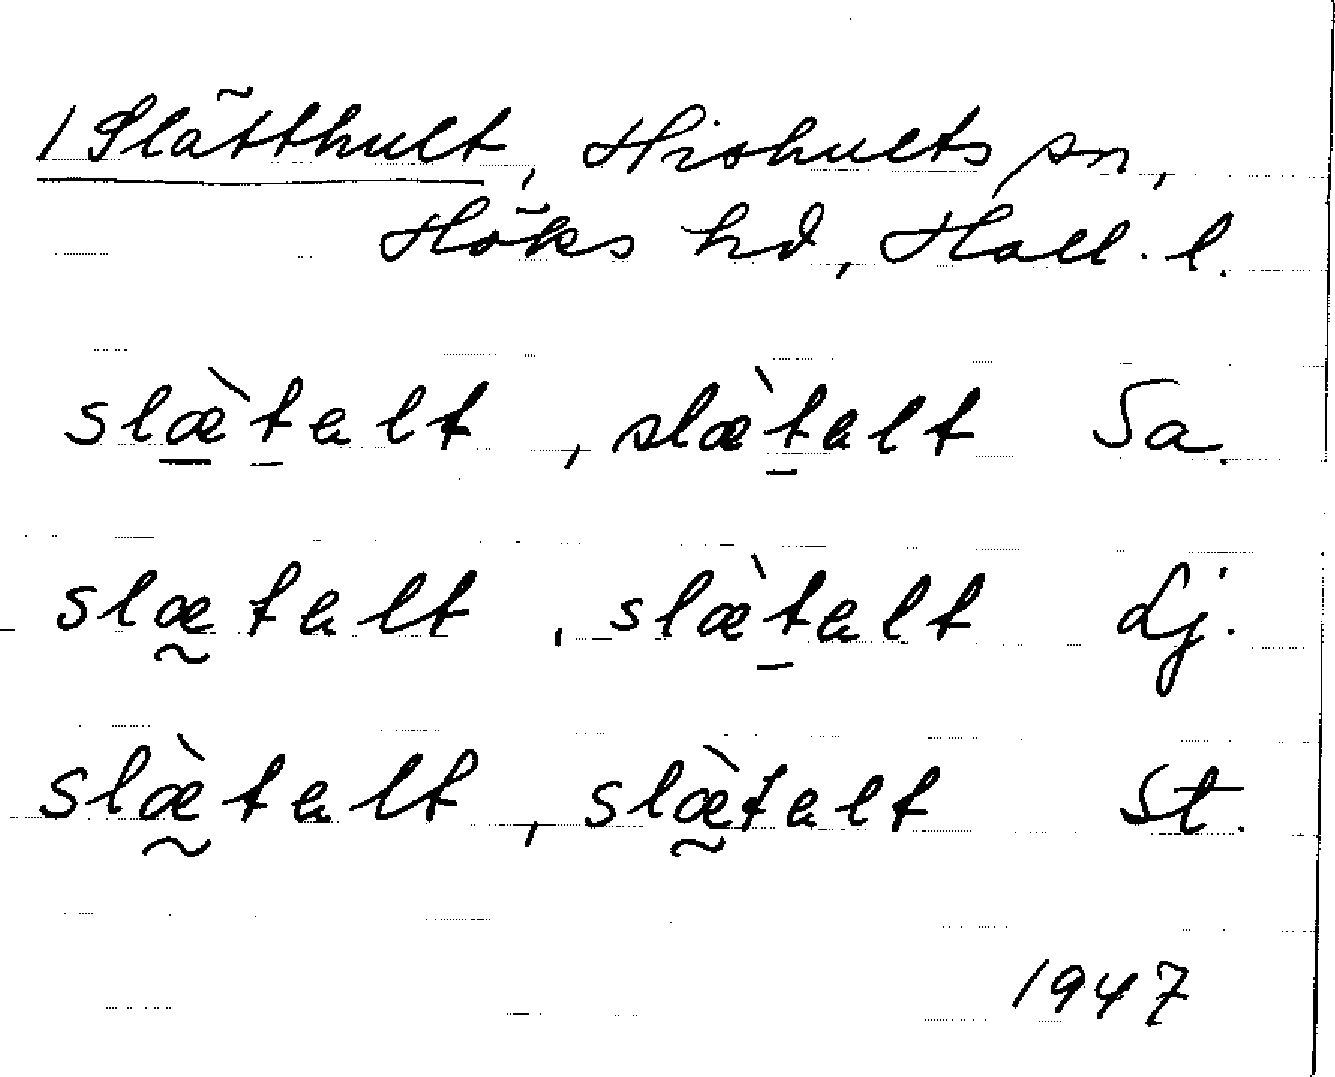 1 Slätthult, Hishults sn,
Höks hd, Hall. l.
slæ̱̀ṯalt, slæ̀ṯalt Sa.
slæ̰talt, slæ̀ṯalt Lj.
slæ̰̀talt, slæ̰̀talt St.
1947